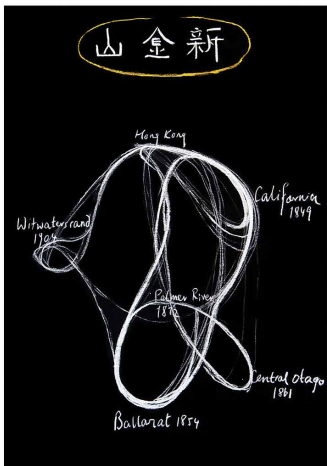 新金山
Hong Kong
California
1849
Witwatersrand
1904
Palmer River
1872
Central Otago
1861
Ballarat 1854